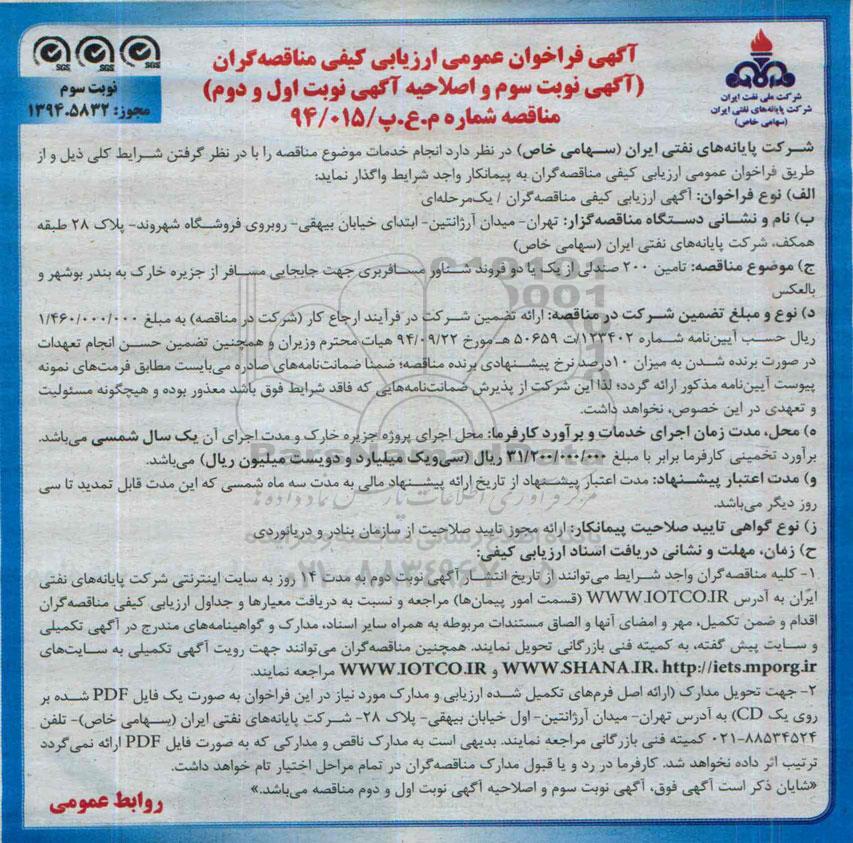 آگهی فراخوان عمومی ارزیابی کیفی مناقصه‌گران
(آگهی نوبت سوم و اصلاحیه آگهی نوبت اول و دوم)
مناقصه شماره م.ع.پ/۹۴/۰۱۵
SGS SGS SGS
نوبت سوم
مجوز: ۱۳۹۴.۵۸۳۲
شرکت ملی نفت ایران
شرکت پایانه‌های نفتی ایران
(سهامی خاص)
شرکت پایانه‌های نفتی ایران (سهامی خاص) در نظر دارد انجام خدمات موضوع مناقصه را با در نظر گرفتن شرایط کلی ذیل و از
طریق فراخوان عمومی ارزیابی کیفی مناقصه‌گران به پیمانکار واجد شرایط واگذار نماید:
الف) نوع فراخوان: آگهی ارزیابی کیفی مناقصه‌گران / یک‌مرحله‌ای
ب) نام و نشانی دستگاه مناقصه‌گزار: تهران- میدان آرژانتین- ابتدای خیابان بیهقی- روبروی فروشگاه شهروند- پلاک ۲۸ طبقه
همکف، شرکت پایانه‌های نفتی ایران (سهامی خاص)
ج) موضوع مناقصه: تامین ۲۰۰ صندلی از یک یا دو فروند شناور مسافربری جهت جابجایی مسافر از جزیره خارک به بندر بوشهر و
بالعکس
د) نوع و مبلغ تضمین شرکت در مناقصه: ارائه تضمین شرکت در فرآیند ارجاع کار (شرکت در مناقصه) به مبلغ ۱/۴۶۰/۰۰۰/۰۰۰
ریال حسب آیین‌نامه شماره ۱۲۳۴۰۲/ت ۵۰۶۵۹ هـ مورخ ۹۴/۰۹/۲۲ هیات محترم وزیران و همچنین تضمین حسن انجام تعهدات
در صورت برنده شدن به میزان ۱۰درصد نرخ پیشنهادی برنده مناقصه؛ ضمنا ضمانت‌نامه‌های صادره می‌بایست مطابق فرمت‌های نمونه
پیوست آیین‌نامه مذکور ارائه گردد؛ لذا این شرکت از پذیرش ضمانت‌نامه‌هایی که فاقد شرایط فوق باشد معذور بوده و هیچگونه مسئولیت
و تعهدی در این خصوص، نخواهد داشت.
ه) محل، مدت زمان اجرای خدمات و برآورد کارفرما: محل اجرای پروژه جزیره خارک و مدت اجرای آن یک سال شمسی می‌باشد.
برآورد تخمینی کارفرما برابر با مبلغ ۳۱/۲۰۰/۰۰۰/۰۰۰ ریال (سی‌ویک میلیارد و دویست میلیون ریال) می‌باشد.
و) مدت اعتبار پیشنهاد: مدت اعتبار پیشنهاد از تاریخ ارائه پیشنهاد مالی به مدت سه ماه شمسی که این مدت قابل تمدید تا سی
روز دیگر می‌باشد.
ز) نوع گواهی تایید صلاحیت پیمانکار: ارائه مجوز تایید صلاحیت از سازمان بنادر و دریانوردی
ح) زمان، مهلت و نشانی دریافت اسناد ارزیابی کیفی:
۱- کلیه مناقصه‌گران واجد شرایط می‌توانند از تاریخ انتشار آگهی نوبت دوم به مدت ۱۴ روز به سایت اینترنتی شرکت پایانه‌های نفتی
ایران به آدرس WWW.IOTCO.IR (قسمت امور پیمان‌ها) مراجعه و نسبت به دریافت معیارها و جداول ارزیابی کیفی مناقصه‌گران
اقدام و ضمن تکمیل، مهر و امضای آنها و الصاق مستندات مربوطه به همراه سایر اسناد، مدارک و گواهینامه‌های مندرج در آگهی تکمیلی
و سایت پیش گفته، به کمیته فنی بازرگانی تحویل نمایند. همچنین مناقصه‌گران می‌توانند جهت رویت آگهی تکمیلی به سایت‌های
WWW.SHANA.IR، http://iets.mporg.ir و WWW.IOTCO.IR مراجعه نمایند.
۲- جهت تحویل مدارک (ارائه اصل فرم‌های تکمیل شده ارزیابی و مدارک مورد نیاز در این فراخوان به صورت یک فایل PDF شده بر
روی یک CD) به آدرس تهران- میدان آرژانتین- اول خیابان بیهقی- پلاک ۲۸- شرکت پایانه‌های نفتی ایران (سهامی خاص)- تلفن
۰۲۱-۸۸۵۳۴۵۲۴ کمیته فنی بازرگانی مراجعه نمایند. بدیهی است به مدارک ناقص و مدارکی که به صورت فایل PDF ارائه نمی‌گردد
ترتیب اثر داده نخواهد شد. کارفرما در رد و یا قبول مدارک مناقصه‌گران در تمام مراحل اختیار تام خواهد داشت.
«شایان ذکر است آگهی فوق، آگهی نوبت سوم و اصلاحیه آگهی نوبت اول و دوم مناقصه می‌باشد.»
روابط عمومی